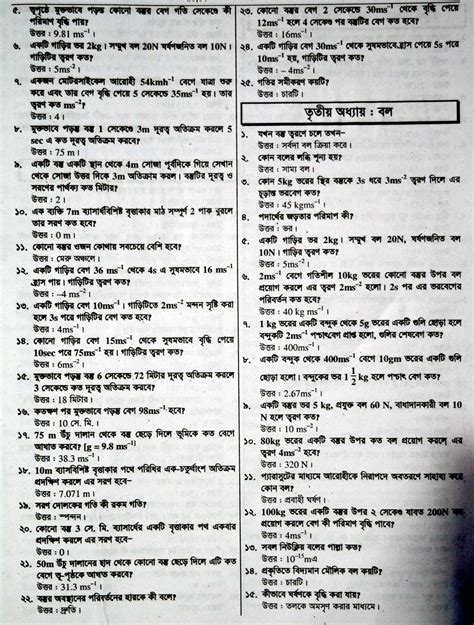 ৫. ভূপৃষ্ঠে মুক্তভাবে পড়ন্ত কোনো বস্তুর বেগ প্রতি সেকেন্ডে কী
পরিমাণ বৃদ্ধি পায়?
উত্তর : 9.81 ms⁻¹।
৬. একটি গাড়ির ভর 2kg। সম্মুখ বল 20N ঘর্ষণজনিত বল 10N।
গাড়িটির ত্বরণ কত?
উত্তর : 5ms⁻²।
৭. একজন মোটরসাইকেল আরোহী 54kmh⁻¹ বেগে যাত্রা শুরু
করে এবং তার বেগ বৃদ্ধি পেয়ে 5 সেকেন্ডে 35ms⁻¹ হয়। তার
ত্বরণ কত ms⁻²?
উত্তর : 4।
৮. মুক্তভাবে পড়ন্ত বস্তু 1 সেকেন্ডে 3m দূরত্ব অতিক্রম করলে 5
sec এ কত দূরত্ব অতিক্রম করবে?
উত্তর : 75 m।
৯. একটি বস্তু একটি স্থান থেকে 4m সোজা পূর্বদিকে গিয়ে সেখান
থেকে সোজা উত্তর দিকে 3m অতিক্রম করল। বস্তুটির দূরত্ব ও
সরণের পার্থক্য কত মিটার?
উত্তর : 2।
১০. এক ব্যক্তি 7m ব্যাসার্ধবিশিষ্ট বৃত্তাকার মাঠ সম্পূর্ণ 2 পাক ঘুরলে
তার সরণ কত হবে?
উত্তর : 0 m।
১১. কোনো বস্তুর ওজন কোথায় সবচেয়ে বেশি হবে?
উত্তর : মেরু অঞ্চলে।
১২. একটি গাড়ির বেগ 36 ms⁻¹ থেকে 4s এ সুষমভাবে 16 ms⁻¹
হ্রাস পায়। গাড়িটির ত্বরণ কত?
উত্তর : –4 ms⁻²।
১৩. একটি গাড়ির বেগ 10ms⁻¹। গাড়িটিতে 2ms⁻² মন্দন সৃষ্টি করা
হলে 3s পরে গাড়িটির বেগ কত?
উত্তর : 4ms⁻¹।
১৪. কোনো গাড়ির বেগ 15ms⁻¹ থেকে সুষমভাবে বৃদ্ধি পেয়ে
10sec পরে 75ms⁻¹ হয়। গাড়িটির ত্বরণ কত?
উত্তর : 6ms⁻²।
১৫. মুক্তভাবে পড়ন্ত বস্তু 6 সেকেন্ডে 72 মিটার দূরত্ব অতিক্রম করলে
3 সেকেন্ডে কত দূরত্ব অতিক্রম করবে?
উত্তর : 18 মিটার।
১৬. কতক্ষণ পর মুক্তভাবে পড়ন্ত বেগ 98ms⁻¹ হবে?
উত্তর : 10 সে. মি.।
১৭. 75 m উঁচু দালান থেকে বস্তু ছেড়ে দিলে ভূমিকে কত বেগে
আঘাত করবে? [g = 9.8 ms⁻²]
উত্তর : 38.3 ms⁻¹।
১৮. 10m ব্যাসবিশিষ্ট বৃত্তাকার পথে পরিধির এক-চতুর্থাংশে অতিক্রম
প্রদক্ষিণ করলে এর সরণ হবে–
উত্তর : 7.071 m।
১৯. সরল দোলকের গতি কী রকম গতি?
উত্তর : স্পন্দন।
২০. কোনো বস্তু 3 সে. মি. ব্যাসার্ধের একটি বৃত্তাকার পথ একবার
প্রদক্ষিণ করলে এর সরণ হবে–
উত্তর : 0।
২১. 50m উঁচু দালানের ছাদ থেকে কোনো বস্তু ছেড়ে দিলে এটি কত
বেগে ভূ-পৃষ্ঠকে আঘাত করবে?
উত্তর : 31.3 ms⁻¹।
২২. বস্তুর অবস্থানের পরিবর্তনের হারকে কী বলে?
উত্তর : দ্রুতি।
২৩. কোনো বস্তুর বেগ 2 সেকেন্ডে 30ms⁻¹ থেকে বৃদ্ধি পেয়ে
12ms⁻¹ হলে 4 সেকেন্ড পর বস্তুটির বেগ কত হবে?
উত্তর : 16ms⁻¹।
২৪. একটি গাড়ির বেগ 30ms⁻¹ থেকে সুষমভাবে হ্রাস পেয়ে 5s পরে
10ms⁻¹ হয়, গাড়িটির ত্বরণ কত?
উত্তর : – 4ms⁻²।
২৫. গতির সমীকরণ কয়টি?
উত্তর : চারটি।
তৃতীয় অধ্যায় : বল
১. যখন বস্তু ত্বরণে চলে তখন–
উত্তর : সর্বদা বল ক্রিয়া করে।
২. কোন বলের লব্ধি শূন্য হয়?
উত্তর : সাম্য বল।
৩. কোন 5kg ভরের স্থির বস্তুকে 3s ধরে 3ms⁻² ত্বরণ দিলে এর
চূড়ান্ত ভরবেগ কত?
উত্তর : 45 kgms⁻¹।
৪. পদার্থের জড়তার পরিমাপ কী?
উত্তর : ভর।
৫. একটি গাড়ির ভর 2kg। সম্মুখ বল 20N, ঘর্ষণজনিত বল
10N। গাড়িটির ত্বরণ কত?
উত্তর : 5ms⁻²।
৬. 2ms⁻¹ বেগে গতিশীল 10kg ভরের কোনো বস্তুর উপর বল
প্রয়োগ করলে এর ত্বরণ 2ms⁻² হলো। 2s পর এর ভরবেগের
পরিবর্তন কত হবে?
উত্তর : 40 kg ms⁻¹।
৭. 1 kg ভরের একটি বন্দুক থেকে 5g ভরের একটি গুলি ছোড়া হলে
বন্দুকটি 2ms⁻¹ পশ্চাৎবেগ প্রাপ্ত হলো, গুলির শেষবেগ কত?
উত্তর : 400ms⁻¹।
৮. একটি বন্দুক থেকে 400ms⁻¹ বেগে 10gm ভরের একটি গুলি
ছোড়া হলো। বন্দুকের ভর 1½ kg হলে পশ্চাৎ বেগ কত?
উত্তর : 2.67ms⁻¹।
৯. একটি বস্তুর ভর 5 kg, প্রযুক্ত বল 60 N, বাধাদানকারী বল 10
N হলে ত্বরণ কত?
উত্তর : 10 ms⁻²।
১০. 80kg ভরের একটি বস্তুর উপর কত বল প্রয়োগ করলে এর
ত্বরণ 4ms⁻² হবে?
উত্তর : 320 N।
১১. প্যারাসুটের মাধ্যমে আরোহীকে নিরাপদে অবতরণে সাহায্য করে
কোন বল?
উত্তর : প্রবাহী ঘর্ষণ।
১২. 100kg ভরের একটি বস্তুর উপর 2 সেকেন্ড যাবত 200N বল
প্রয়োগ করলে বেগ কী পরিমাণ বৃদ্ধি পাবে?
উত্তর : 4ms⁻¹।
১৩. সবল নিউক্লিয় বলের পাল্লা কত?
উত্তর : 10⁻¹⁵m
১৪. প্রকৃতিতে বিদ্যমান মৌলিক বল কয়টি?
উত্তর : চারটি।
১৫. কীভাবে ঘর্ষণকে বৃদ্ধি করা যায়?
উত্তর : তলকে অমসৃণ করার মাধ্যমে।